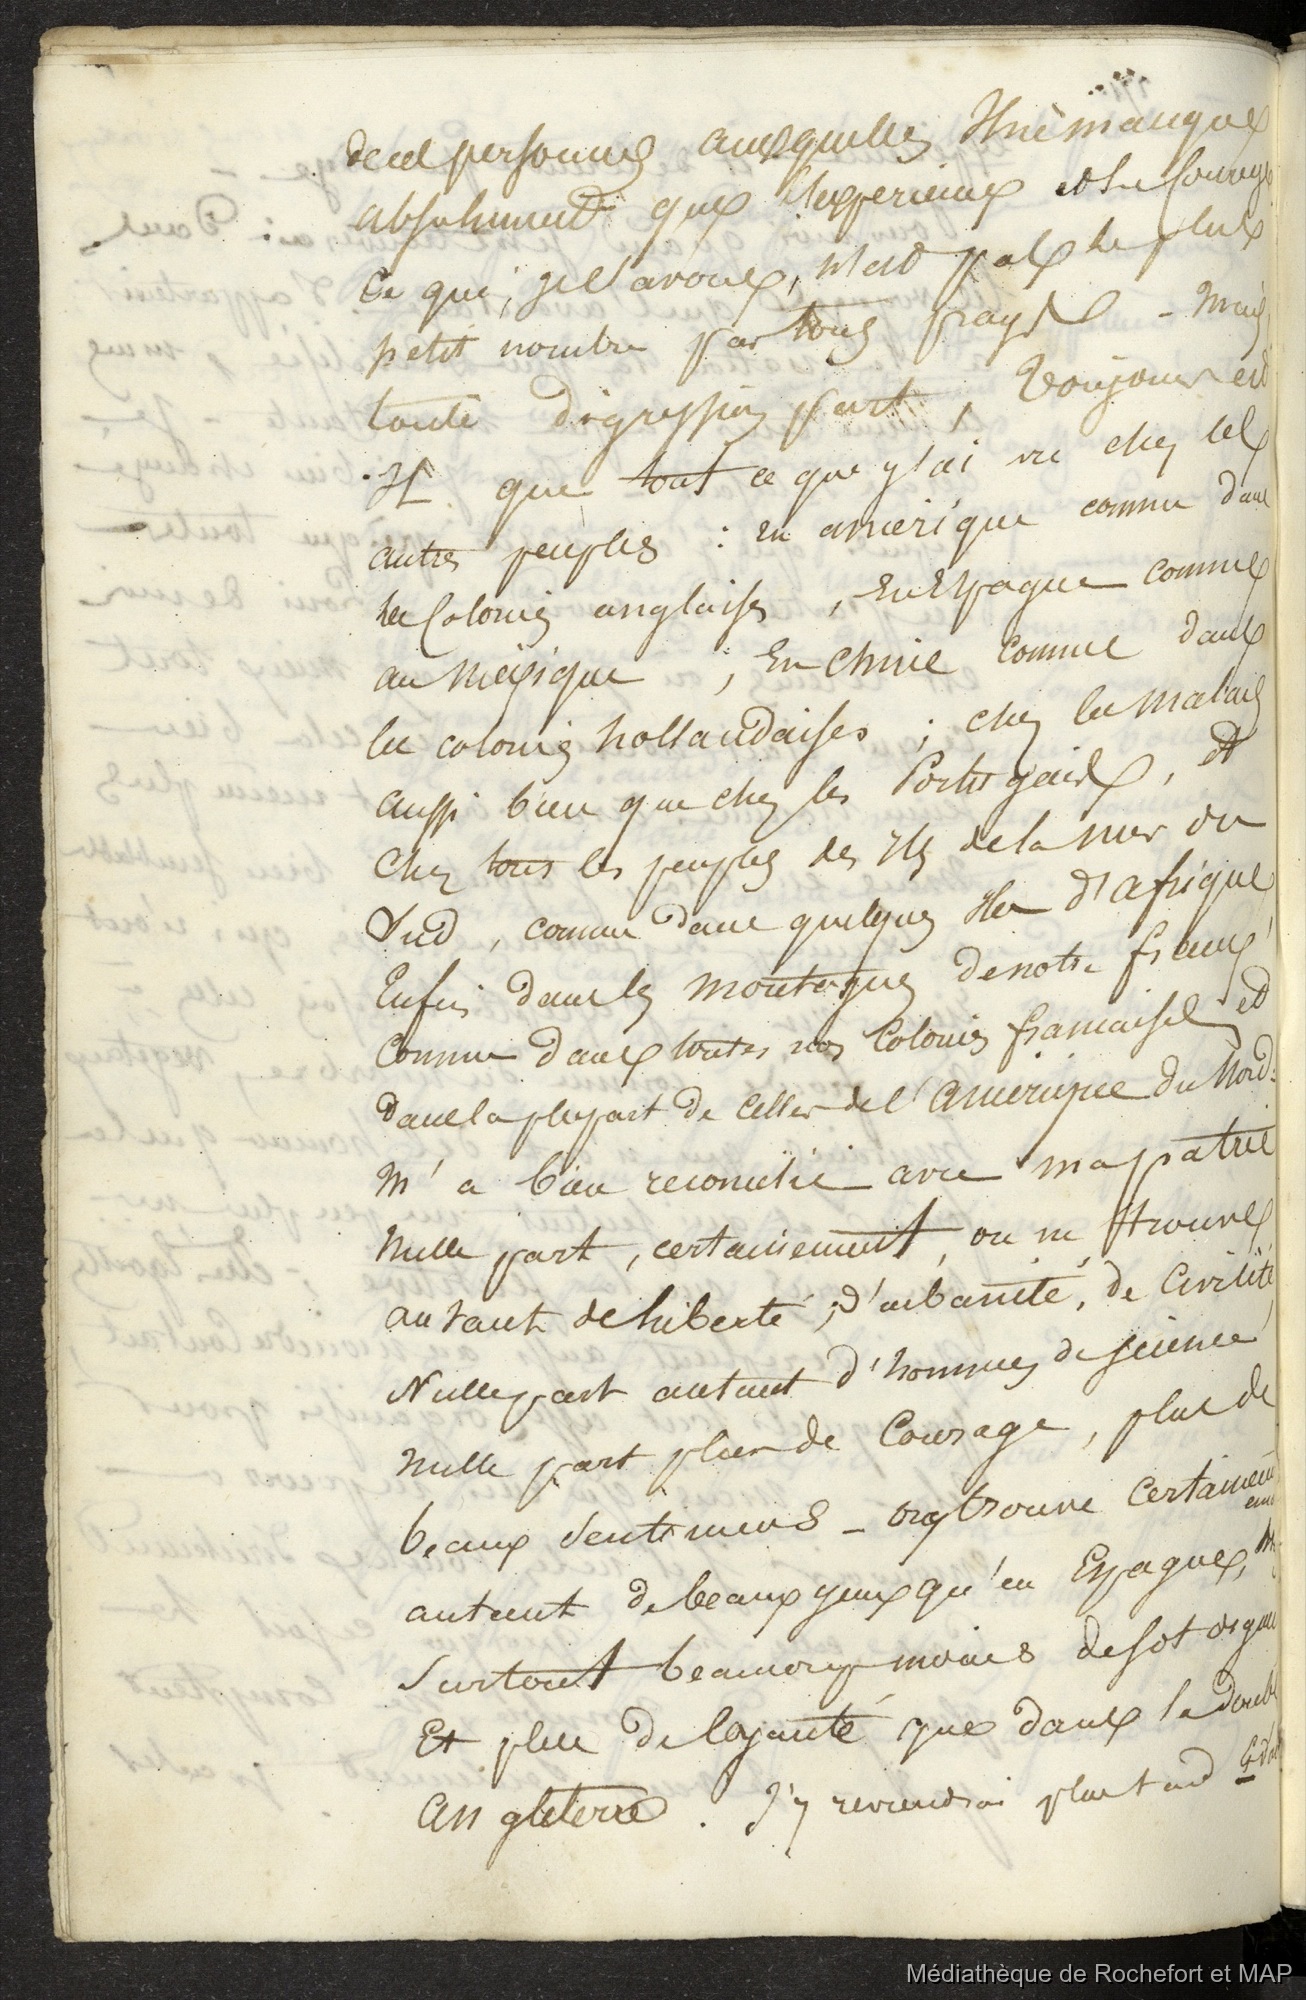 de ces personnes auxquelles il ne manque
absolument que l'experience et le
ce qui, je l'avoue, n'est pas le plus
petit nombre par tous pays - Mais
toute digression part, Toujours est
il que tout ce que j'ai vu chez les
autres peuples : en amérique comme dans
les Colonies anglaises, En Espagne comme
au Mexique ; En Chine comme dans
les colonies hollandaises ; chez les malais
aussi bien que chez les Portugais, et
chez tous les peuples des Iles de la mer du
Sud, comme dans quelques Iles d'afrique
Enfin dans les montagnes de notre france,
Comme dans toutes nos Colonies francaises et
dans la plupart de celles de l'Amerique du Nord :
M'a bien reconcilié avec ma patrie
Nulle part, certainement, on ne trouve
autant de liberté, d'urbanité, de Civilité
Nulle part autant d'hommes de science
nulle part plus de Courage, plus de
beaux sentimens - on y trouve certainement
autant de beaux yeux qu'en Espagne,
Surtout beaucoup moins de sot orgueil
Et plus de loyauté que dans la double
Angleterre. J'y reviendrai plus tard
Médiathèque de Rochefort et MAP